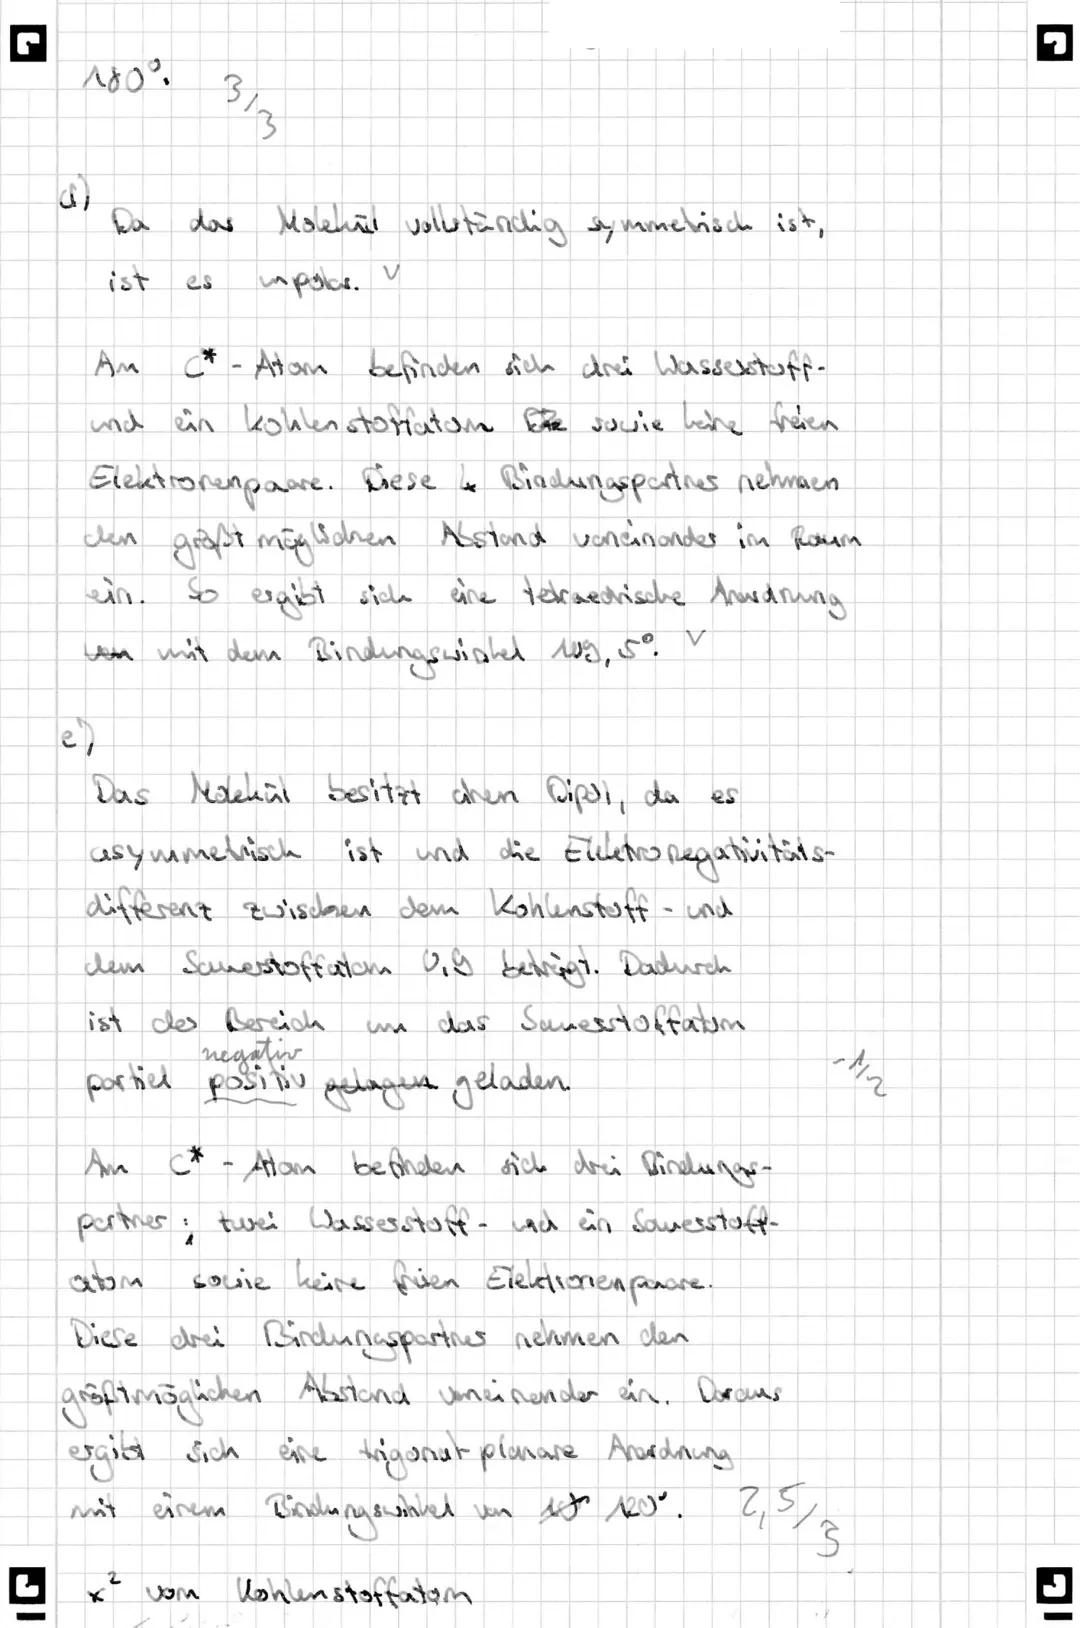 180°.
3/3
d)
Da das Molekül vollständig symmetrisch ist,
ist es unpolar. V
Am C* - Atom befinden sich drei Wasserstoff-
und ein Kohlenstoffatom sowie keine freien
Elektronenpaare. Diese 4 Bindungspartner nehmen
den größtmöglichen Abstand voneinander im Raum
ein. So ergibt sich eine tetraedrische Anordnung
von mit dem Bindungswinkel 109,5°. V
e)
Das Molekül besitzt einen Dipol, da es
asymmetrisch ist und die Elektronegativitäts-
differenz zwischen dem Kohlenstoff - und
dem Sauerstoffatom 0,9 beträgt. Dadurch
ist der Bereich um das Sauerstoffatom
negativ
partiel positiv gelagen geladen.
-1/2
Am C* - Atom befinden sich drei Bindungs-
partner; zwei Wasserstoff- und ein Sauerstoff-
atom sowie keine freien Elektronenpaare.
Diese drei Bindungspartner nehmen den
größtmöglichen Abstand voneinander ein. Daraus
ergibt sich eine trigonal planare Anordnung
mit einem Bindungswinkel von 120°.
2,5/3
x² vom Kohlenstoffatom